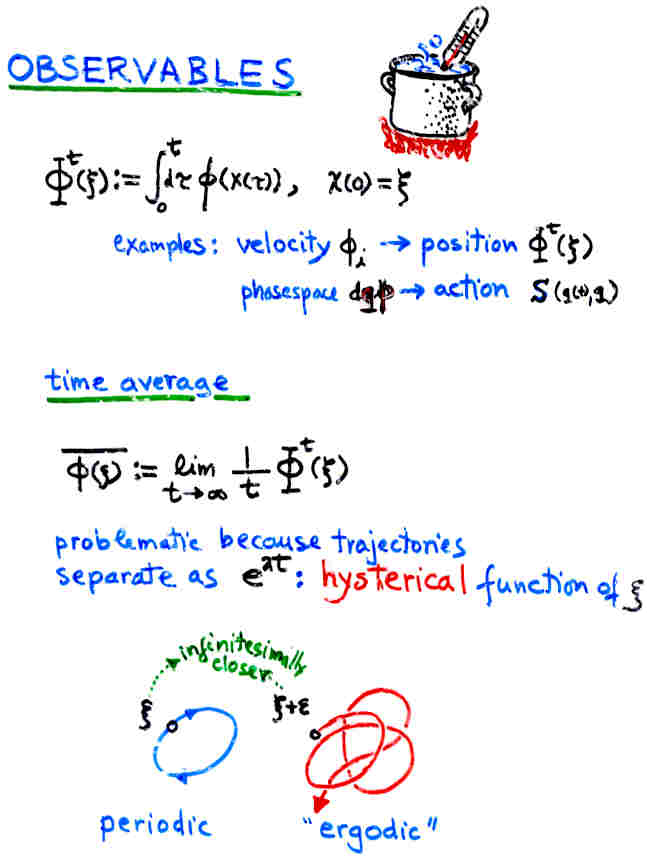 OBSERVABLES
Φᵗ(ξ) := ∫₀ᵗ dτ ϕ(x(τ)), x(0) = ξ
examples: velocity ϕᵢ → position Φᵗ(ξ)
phasespace dqp → action S(q(t),q)
time average
\overline{ϕ(ξ)} := lim_{t→∞} 1/t Φᵗ(ξ)
problematic because trajectories
separate as e^{λt}: hysterical function of ξ
infinitesimally
closer
ξ ξ+ε
periodic "ergodic"